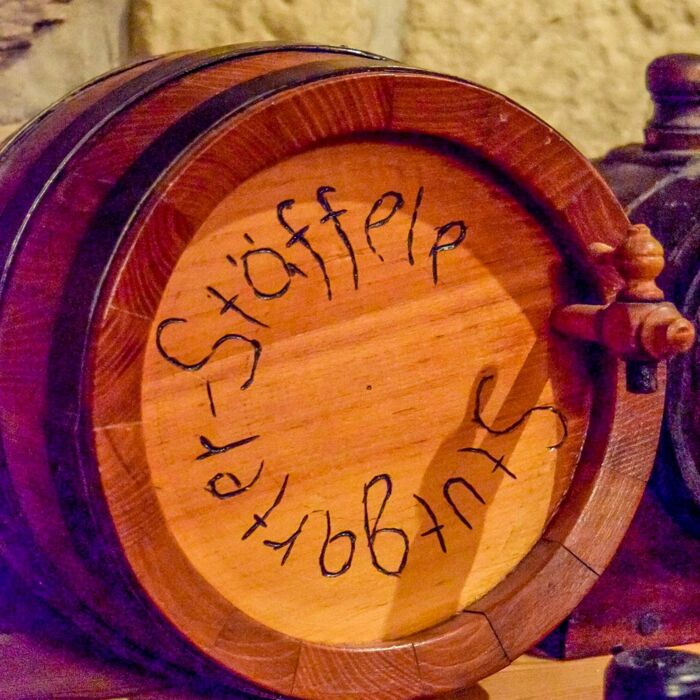 Stutgarter-Stäffele